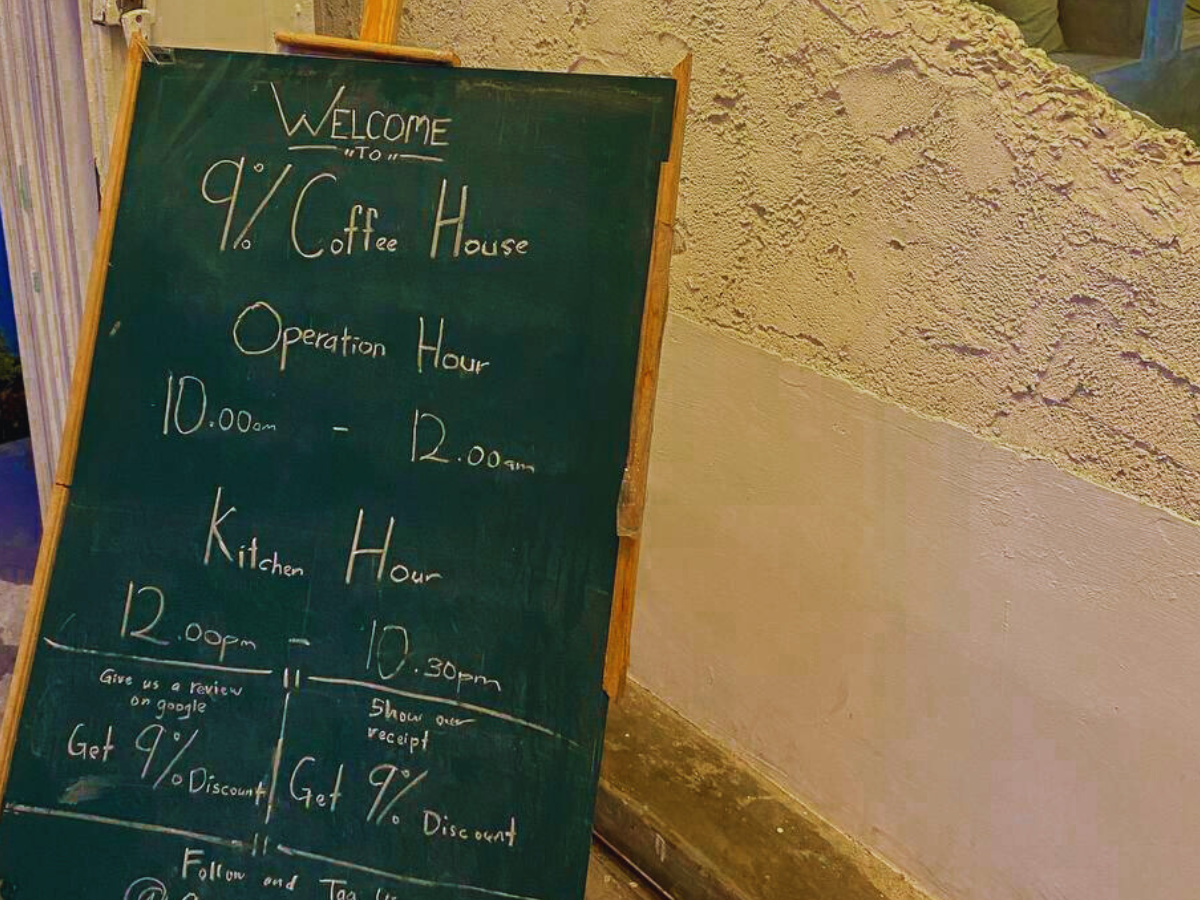 WELCOME
"TO"
9% Coffee House
Operation Hour
10.00am - 12.00am
Kitchen Hour
12.00pm - 10.30pm
Give us a review
on google
Get 9% Discount
Show our
receipt
Get 9% Discount
Follow and Tag Us
@